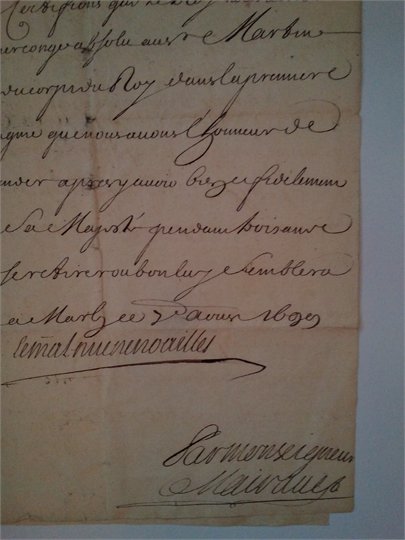 Certifions que le Roy
congé absolu au sr Martin
du corps du Roy dans la premiere
gnie que nous auons l'honneur de
nder apres y auoir fidelement
Sa Majesté pendant trois ans
se retirer ou bon luy semblera
a Marly ce 7e aoust 1699
le mal duc de noailles
Par monseigneur